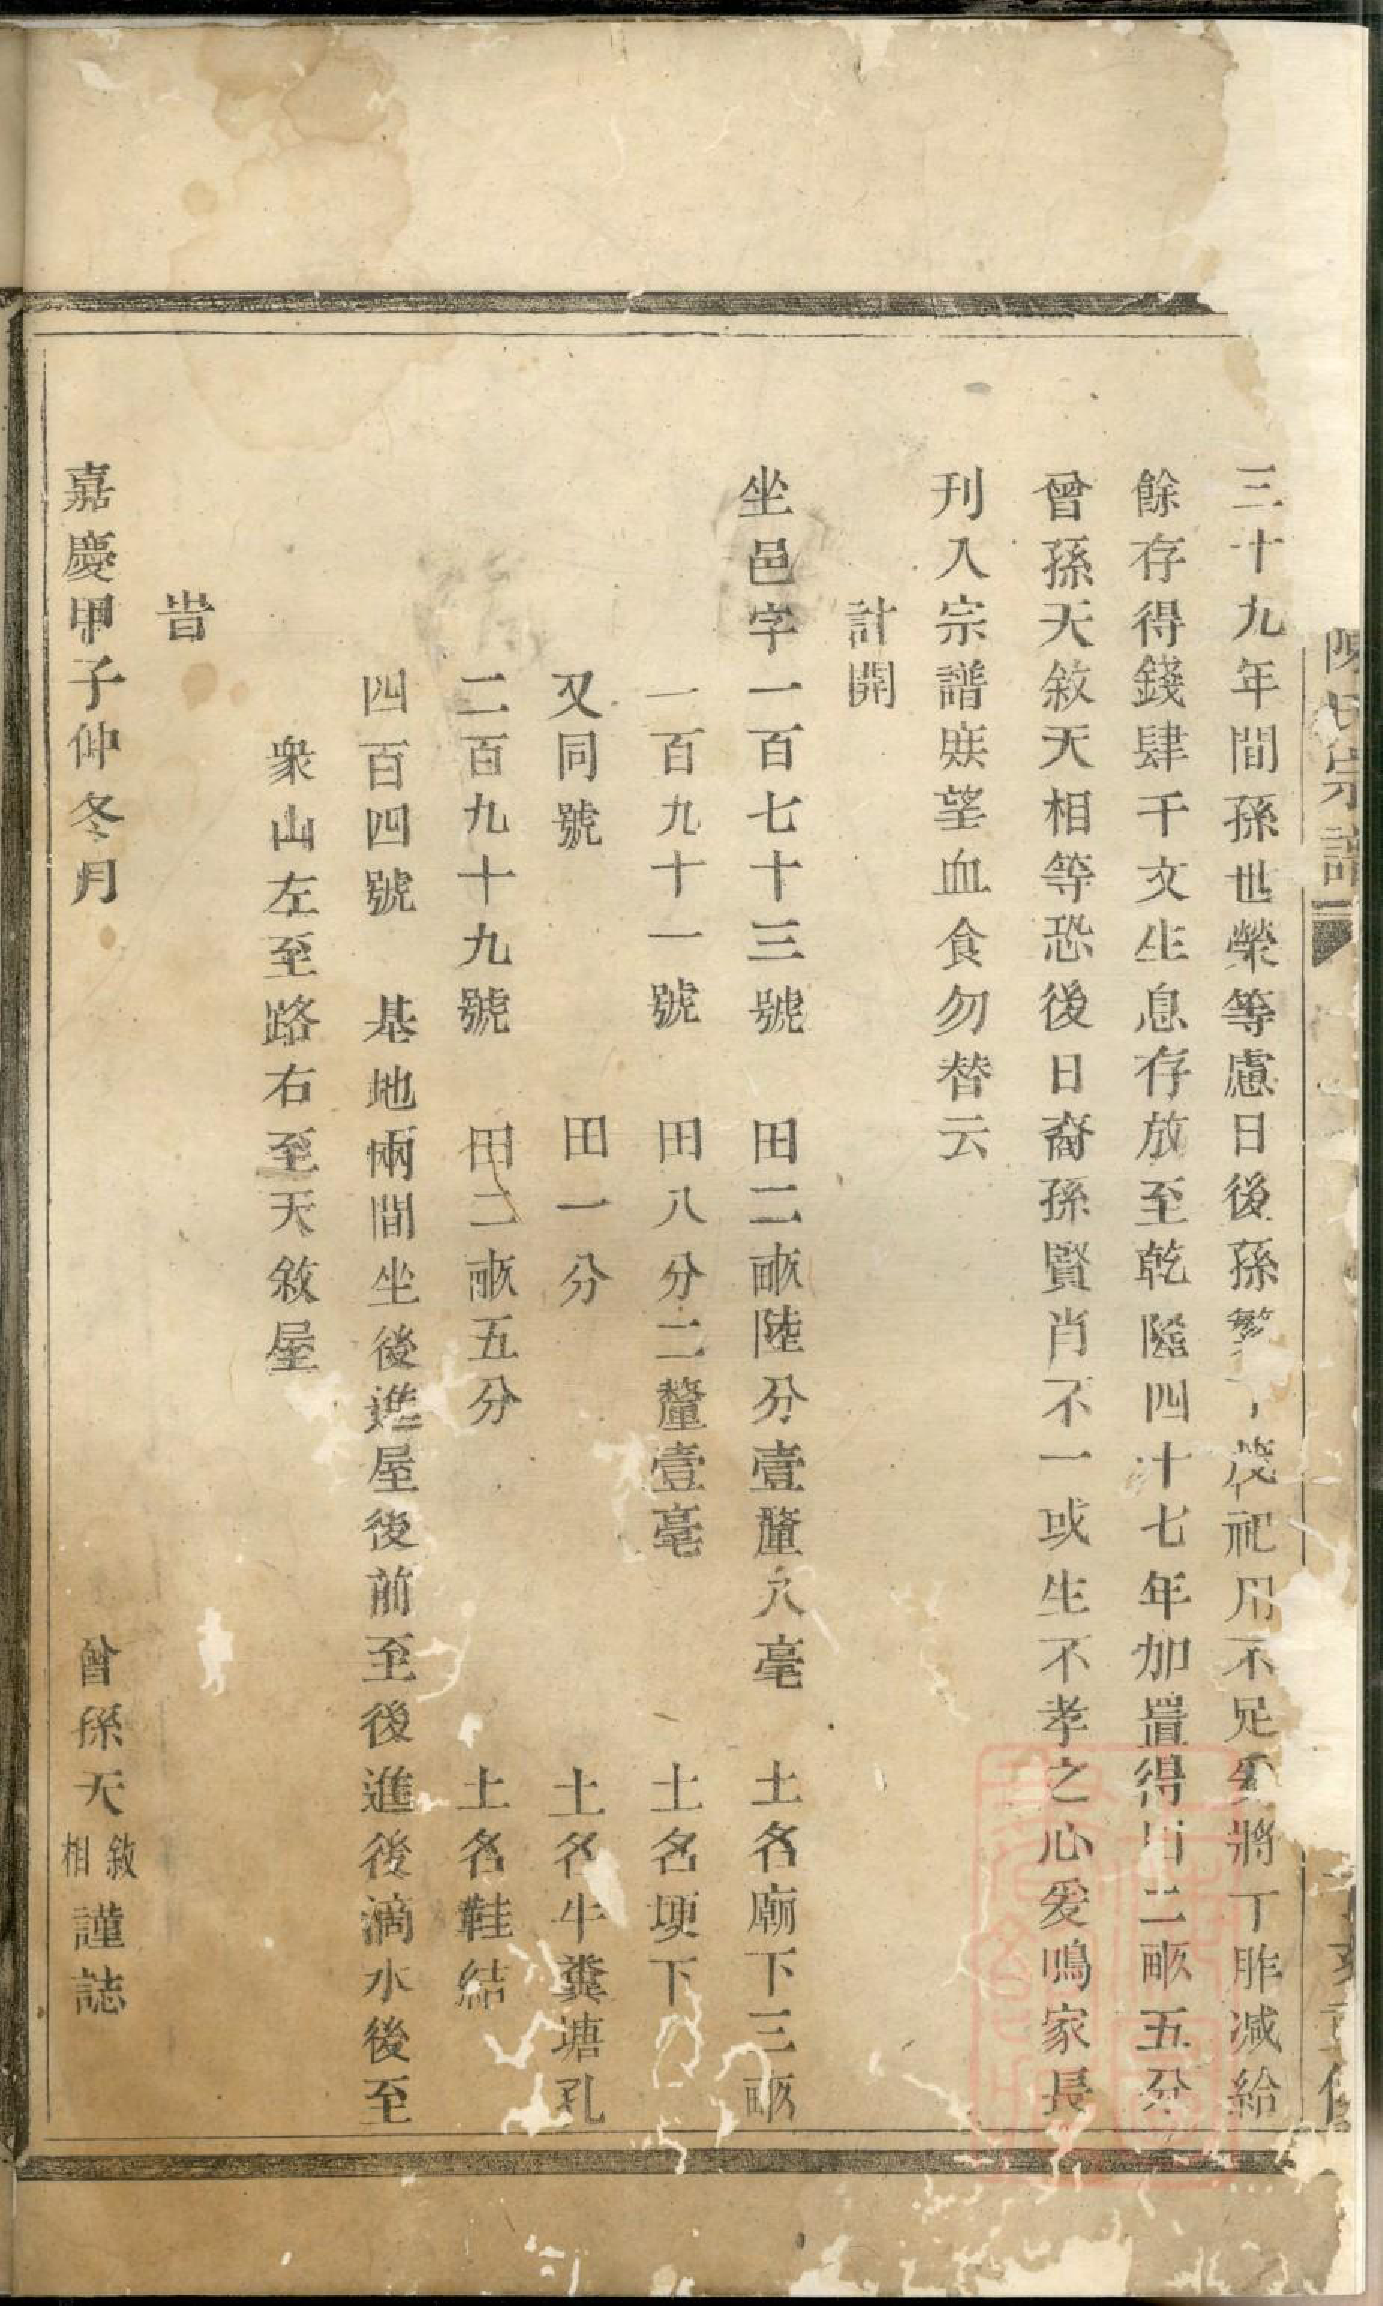 宗譜
三十九年間孫世榮等慮日後孫繁丁茂祀用不足爰將丁胙减給
餘存得錢肆千文生息存放至乾隆四十七年加置得田二畝五分
曾孫天敘天相等恐後日裔孫賢肖不一或生不孝之心爰鳴家長
刋入宗譜庶望血食勿替云
計開
坐邑字一百七十三號 田二畝陸分壹釐八毫 土名廟下三畝
一百九十一號 田八分二釐壹毫 土名埂下
又同號 田一分 土名牛糞塘孔
二百九十九號 田二畝五分 土名鞋結
四百四號 基地兩間坐後進屋後前至後進後滴水後至
衆山左至路右至天敘屋
旹
嘉慶甲子仲冬月 曾孫天敘相謹誌